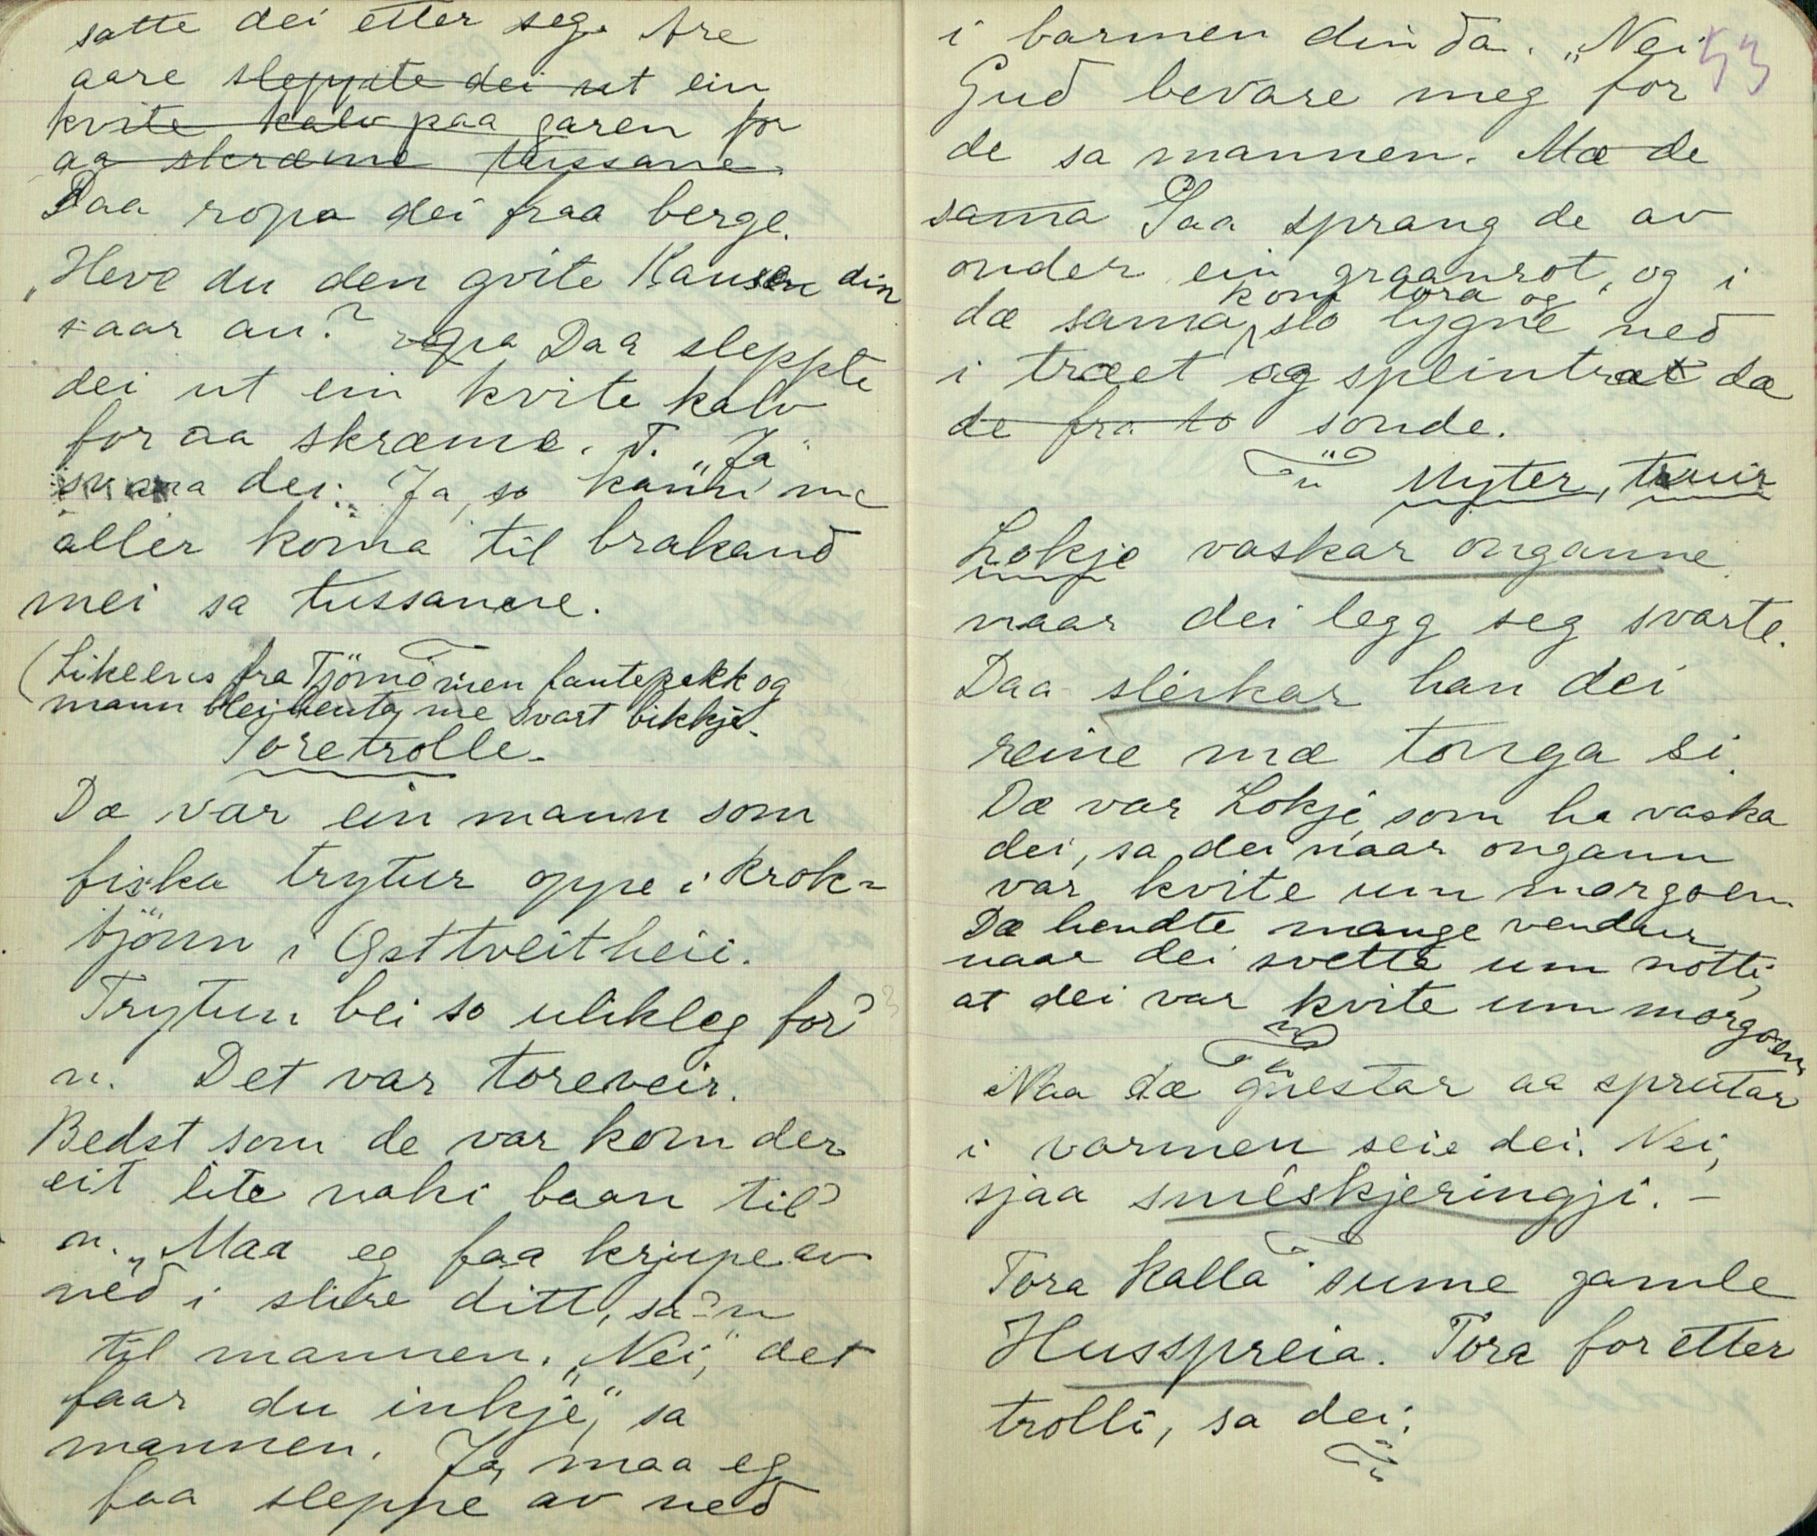 satte dei etter seg. Are
aare sleppte dei ut ein
kvite kalv paa garen for
aa skræme tussane.
Daa ropa dei fraa berge.
"Heve du den gvite Kausen din
aar an? Daa sleppte
dei ut ein kvite kalv
for aa skræme. T. "Ja"
svara dei. Ja, so kann me
aller koma til brakand
mei sa tussanere.
(Likeens fra Tjönnömen fantepakk og
mann blei henta me svart bikkje.
Toretrolle.
Dæ var ein mann som
fiska trytur oppe i Krok-
tjönn i Gsttveitheii.
Trytun bei so ulikleg for
n. Det var toreveir.
Bedst som de var kom der
eit lite naki baan til
n. "Maa eg faa krjupe av
ned i slire ditt, sa n
til mannen. "Nei," det
faar du inkje," sa
mannen. Ja, maa eg
faa sleppe av ned
i barmen din da. "Nei 53
Gud bevare meg for
de sa mannen. Mæ de
sama Saa sprang de av
onder ein graanrot, og i
kom tora og
dæ sama, slo lygne ned
i træet og splintrat dæ
de fra to sonde.
Myter, truir
Lokje vaskar onganne
naar dei legg seg svarte.
Daa sleikar han dei
reine mæ tonga si.
Dæ var Lokje, som ha vaska
dei, sa dei naar ongann
var kvite um morgoen.
Dæ hendte mange vendur
naar dei svette um notti,
at dei var kvite um morgoen
Naa dæ gnestar aa sprutar
i varmen seie dei. Nei,
sjaa sméskjeringji. –
Tora kalla sume gamle
Husspreia. Tora for etter
trolli, sa dei.